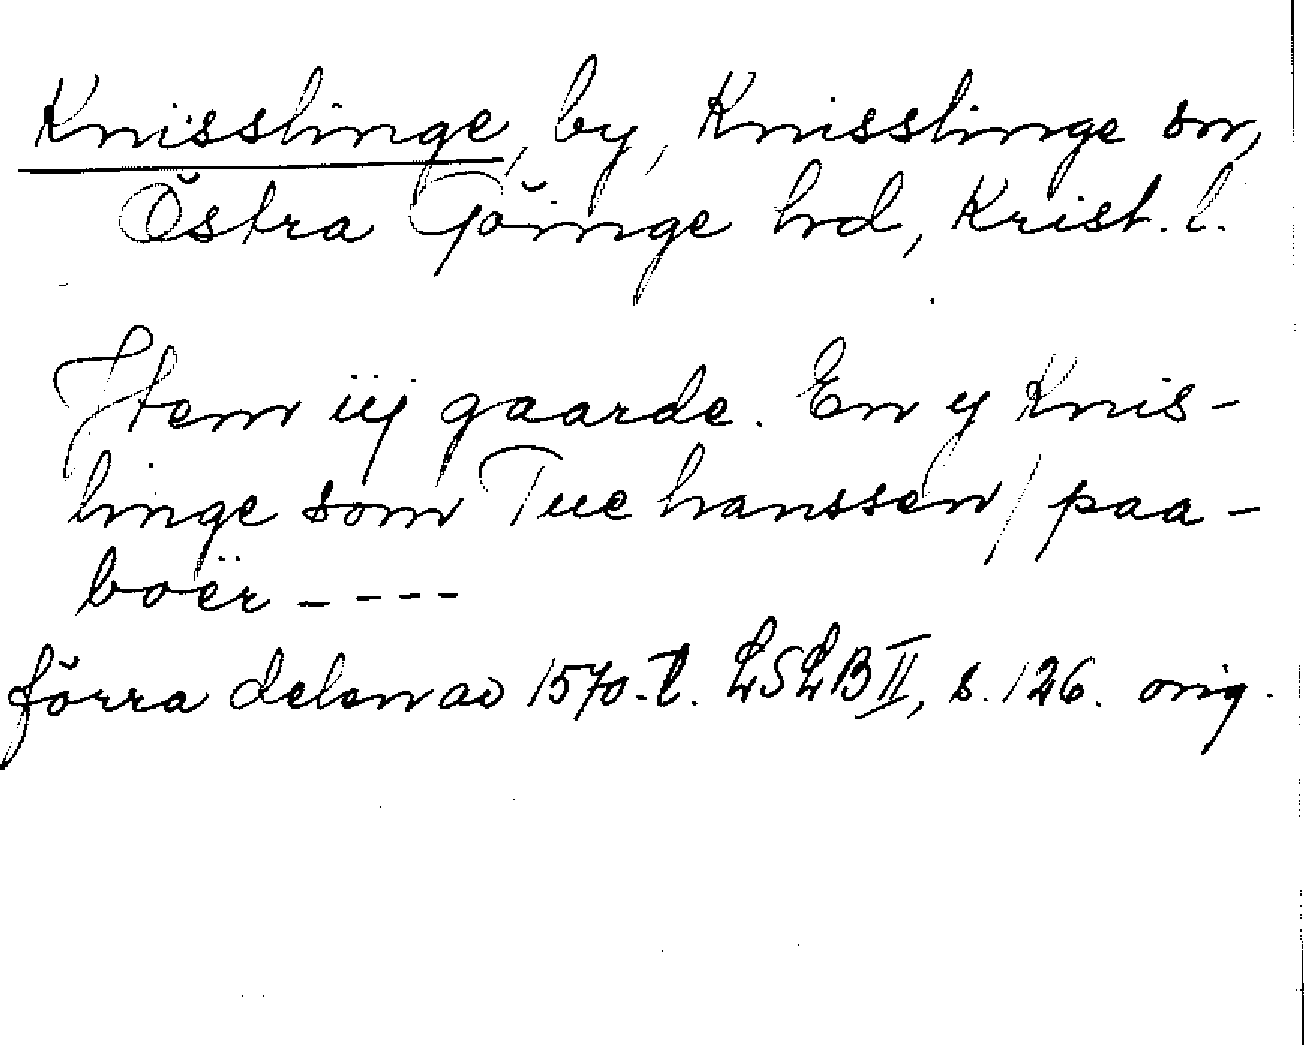 Knisslinge, by, Knisslinge sn,
Östra Göinge hd, Krist. l.
Item iij gaarde. En y Knis-
linge som Tue hanssen / paa-
boër - - - -
förra delen av 1570-t. LSLB II, s. 126. orig.